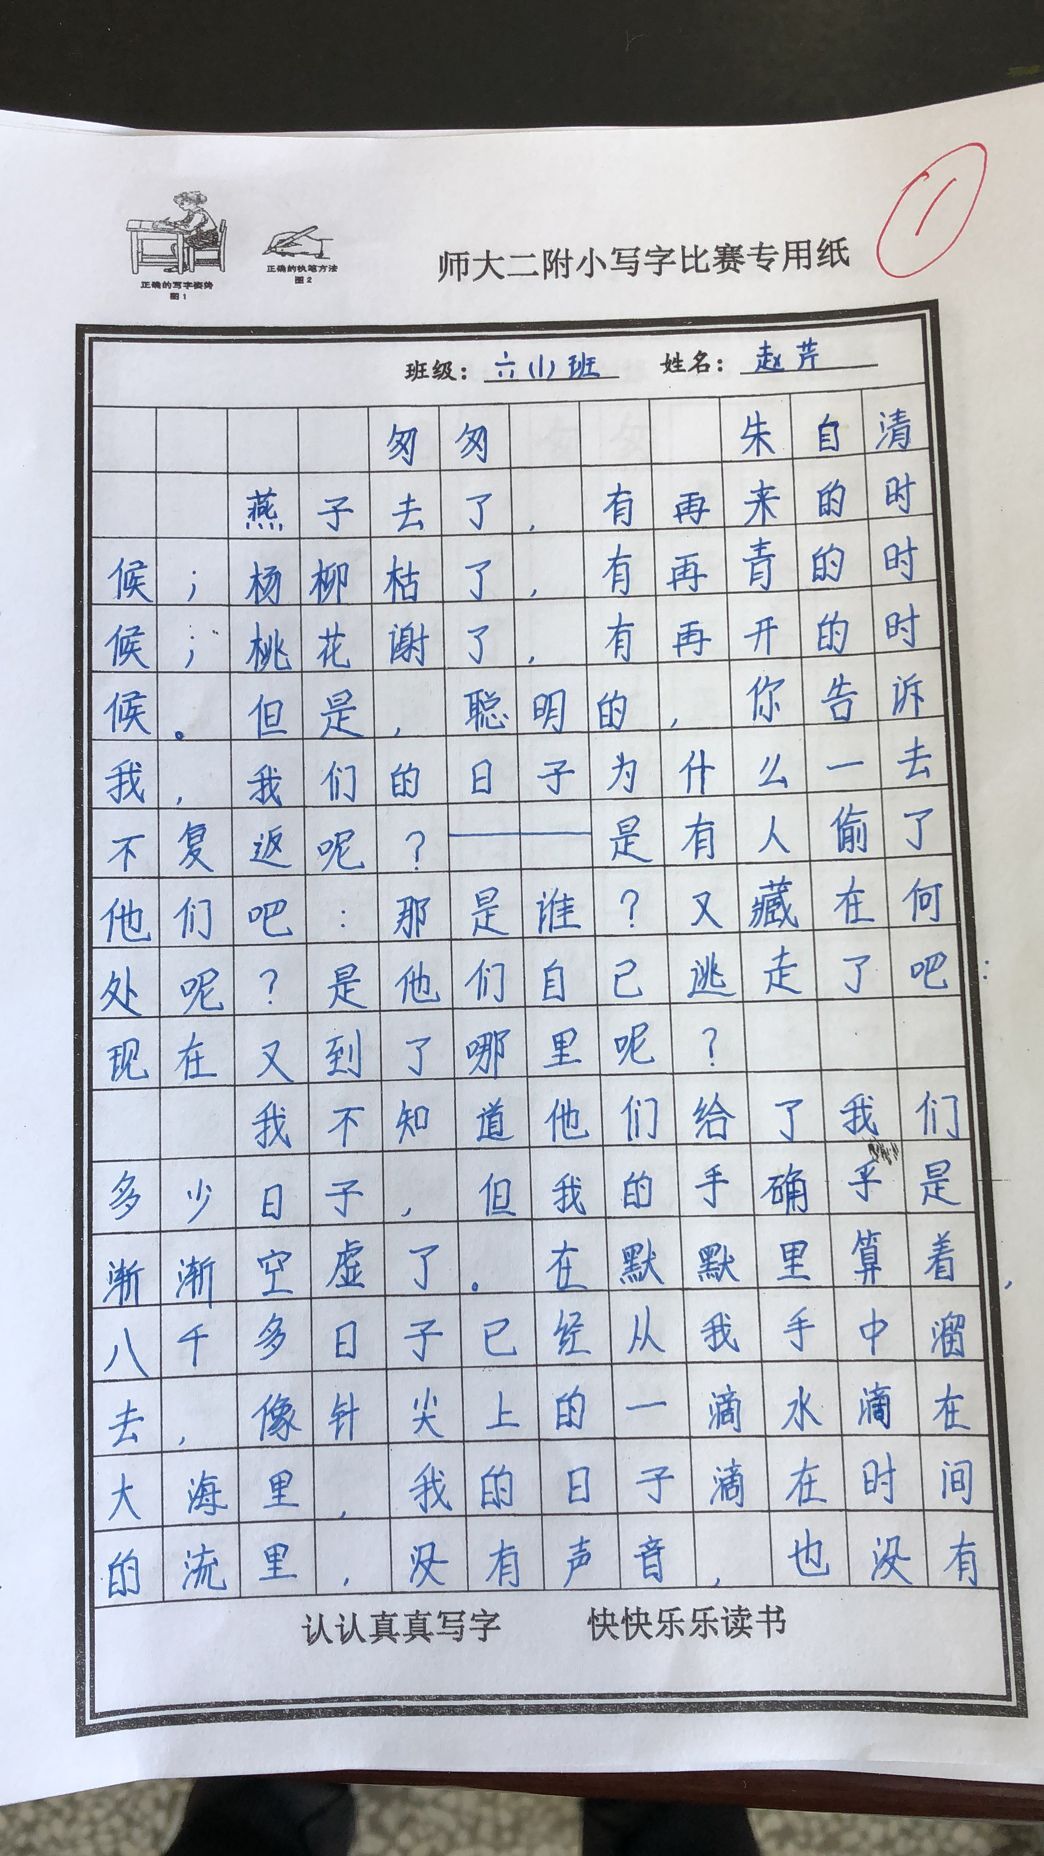 1
正确的写字姿势
图1
正确的执笔方法
图2
师大二附小写字比赛专用纸
班级：六(1)班 姓名：赵芹
匆匆 朱自清
燕子去了，有再来的时
候；杨柳枯了，有再青的时
候；桃花谢了，有再开的时
候。但是，聪明的，你告诉
我，我们的日子为什么一去
不复返呢？——是有人偷了
他们吧：那是谁？又藏在何
处呢？是他们自己逃走了吧：
现在又到了哪里呢？
我不知道他们给了我们
多少日子，但我的手确乎是
渐渐空虚了。在默默里算着，
八千多日子已经从我手中溜
去，像针尖上的一滴水滴在
大海里，我的日子滴在时间
的流里，没有声音，也没有
认认真真写字 快快乐乐读书